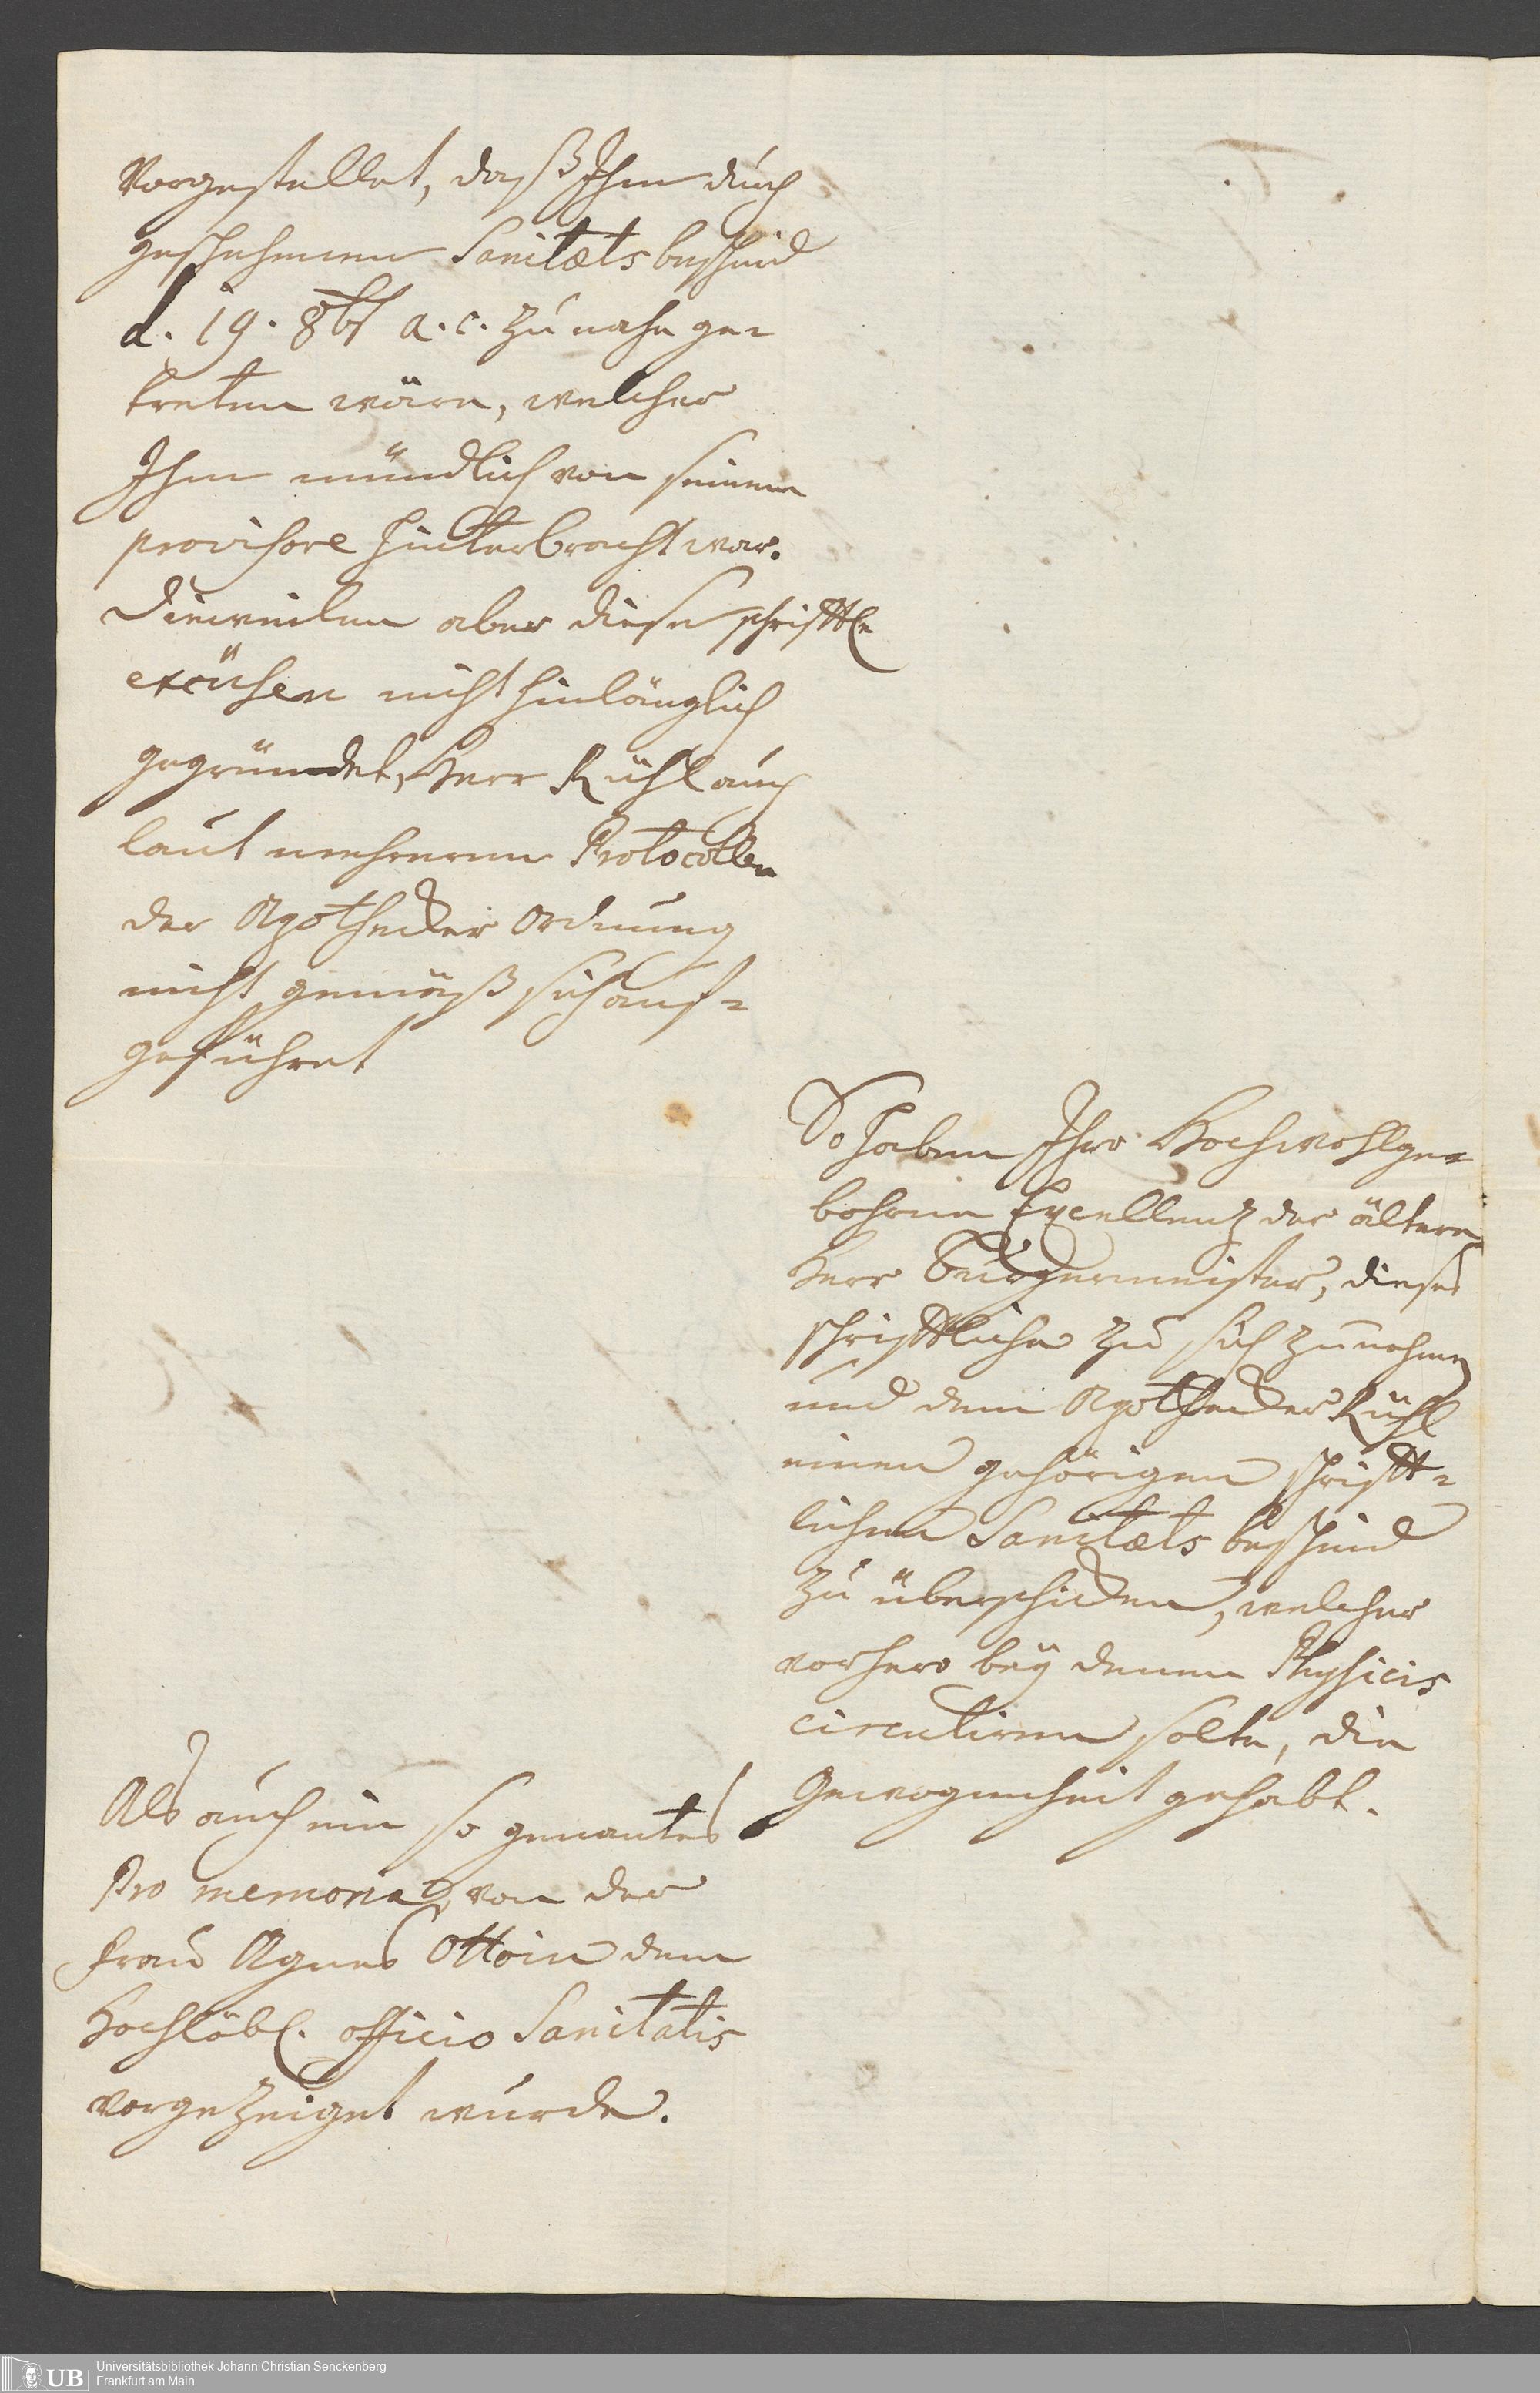 Vorgestellet, daß Ihm durch
geschehenen Sanitæts bescheid
d. 19. 8br a. c. zu nahe ge-
tretten wäre, welcher
Ihm mündlich von seinem
provisore hinterbracht war.
Dieweilen aber diese schriftl
excüsen nicht hinlänglich
gegründet, Herr Rühl auch
laut mehreren Protocollen
der Apothecker Ordnung
nicht gemäß sich auf-
geführet
So haben Ihro Hochwohlge-
bohrne Excellentz der ältere
Herr Burgermeister, dieses
schrifftliche zu sich zu nehmen
und dem Apothecker Rühl
einen gehörigen schrifft-
lichen Sanitæts bescheid
zu überschicken, welcher
vorhero beÿ denen Physicis
circuliren solte, die
Gewogenheit gehabt.
Als auch ein so genantes
Pro memoria, von der
Frau Agnes Ottoin dem
Hochlöbl. officio Sanitatis
vorgezeiget wurde.
Universitätsbibliothek Johann Christian Senckenberg
Frankfurt am Main
UB